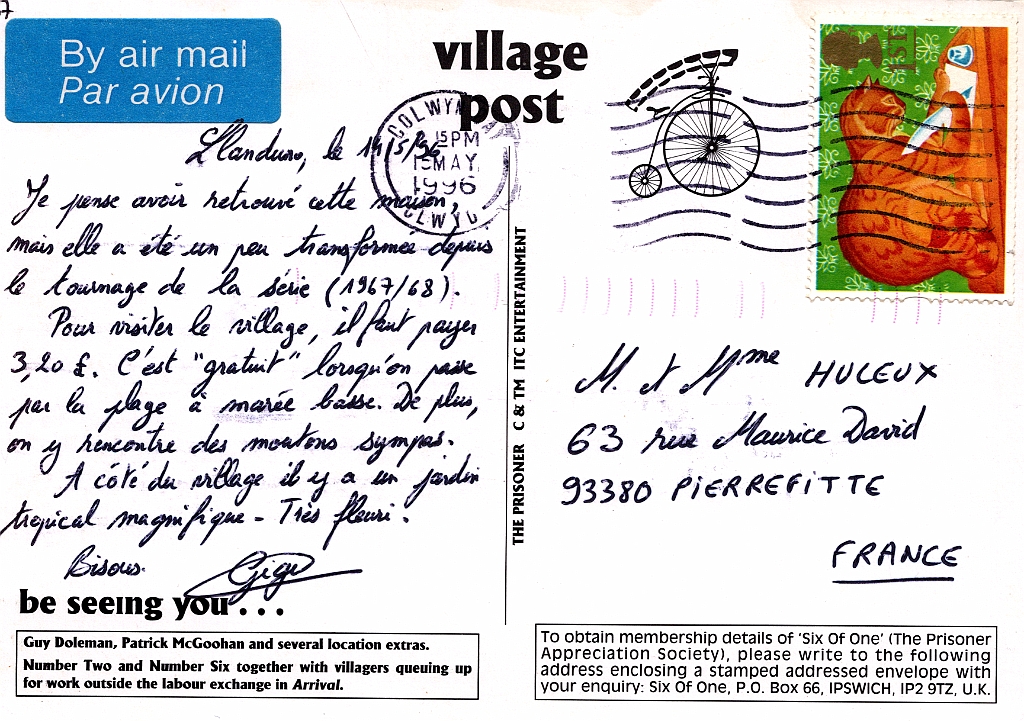 By air mail
Par avion
village
post
COLWYN
15 PM
15 MAY
1996
CLWYD
Llanduno, le 14/5/96
Je pense avoir retrouvé cette maison,
mais elle a été un peu transformée depuis
le tournage de la série (1967/68).
Pour visiter le village, il faut payer
3,20 £. C'est "gratuit" lorsqu'on passe
par la plage à marée basse. De plus,
on y rencontre des moutons sympas.
A côté du village il y a un jardin
tropical magnifique - Très fleuri.
Bisous. Gigi
be seeing you . . .
Guy Doleman, Patrick McGoohan and several location extras.
Number Two and Number Six together with villagers queuing up
for work outside the labour exchange in Arrival.
THE PRISONER C & TM ITC ENTERTAINMENT
1ST
M. et Mme HULEUX
63 rue Maurice David
93380 PIERREFITTE
FRANCE
To obtain membership details of 'Six Of One' (The Prisoner
Appreciation Society), please write to the following
address enclosing a stamped addressed envelope with
your enquiry: Six Of One, P.O. Box 66, IPSWICH, IP2 9TZ, U.K.